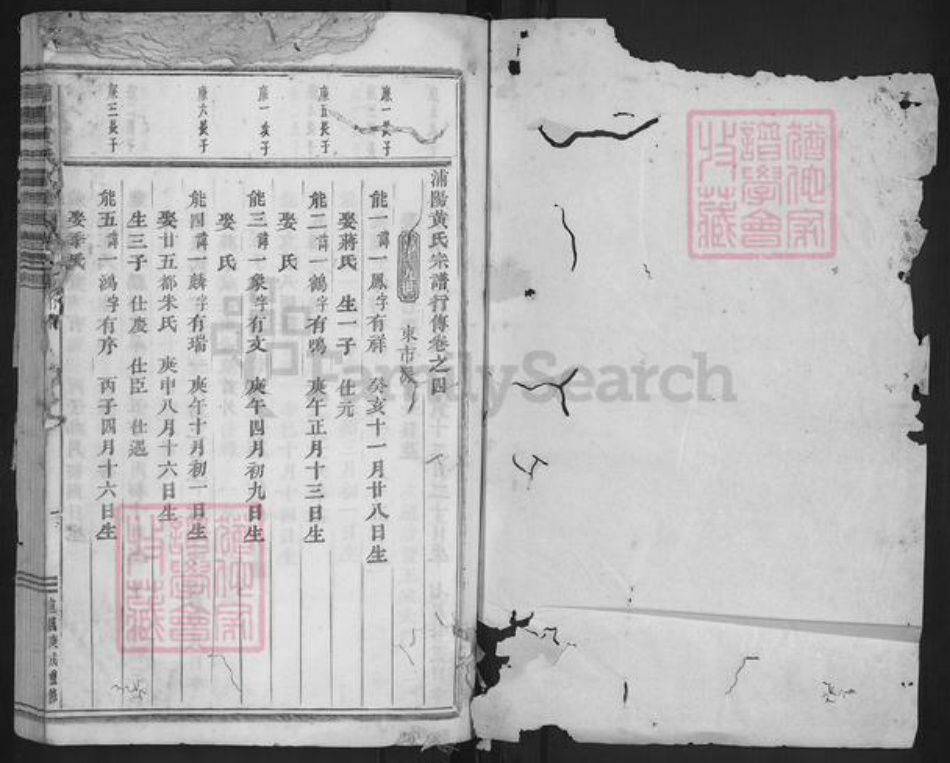 浦陽黃氏宗譜行傳卷之四
東市派
康一長子
能一諱一鳳字有祥 癸亥十一月廿八日生
娶蔣氏 生一子 仕元
康五長子
能二諱一鶴字有鳴 庚午正月十三日生
娶 氏
康一次子
能三諱一象字有文 庚午四月初九日生
娶 氏
康六長子
能四諱一麟字有瑞 庚午十月初一日生
娶廿五都朱氏 庚申八月十六日生
生三子 仕慶 仕臣 仕遇
康三長子
能五諱一鴻字有序 丙子四月十六日生
娶季氏
宣統庚戌重修
譜學會
收藏
FamilySearch